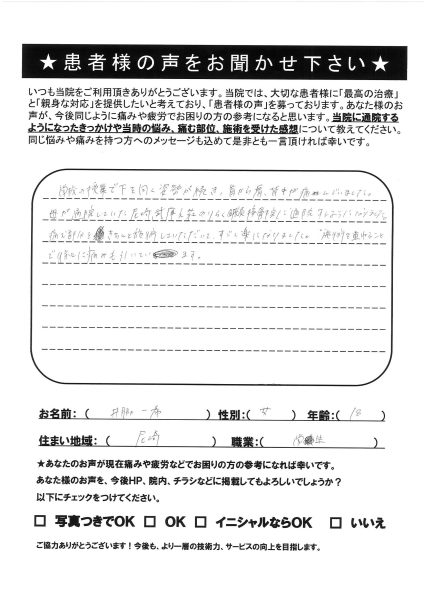 ★患者様の声をお聞かせ下さい★
いつも当院をご利用頂きありがとうございます。当院では、大切な患者様に「最高の治療」
と「親身な対応」を提供したいと考えており、「患者様の声」を募っております。あなた様のお
声が、今後同じように痛みや疲労でお困りの方の参考になると思います。当院に通院する
ようになったきっかけや当時の悩み、痛む部位、施術を受けた感想について教えてください。
同じ悩みや痛みを持つ方へのメッセージも込めて是非とも一言頂ければ幸いです。
の授業で下を向く姿勢が続き、首から肩、背中が痛
母が通院していた尼崎 のりらく 整骨院に通院するようになりました。
痛む部位を きちんと施術していただいて、すごく楽になりました。
に痛みも 
ます。
お名前：（ 井 一 ） 性別：（ 女 ） 年齢：（ 18 ）
住まい地域：（ 尼崎 ） 職業：（ 学生 ）
★あなたのお声が現在痛みや疲労などでお困りの方の参考になれば幸いです。
あなた様のお声を、今後HP、院内、チラシなどに掲載してもよろしいでしょうか？
以下にチェックをつけてください。
□ 写真つきでOK □ OK □ イニシャルならOK □ いいえ
ご協力ありがとうございます！今後も、より一層の技術力、サービスの向上を目指します。